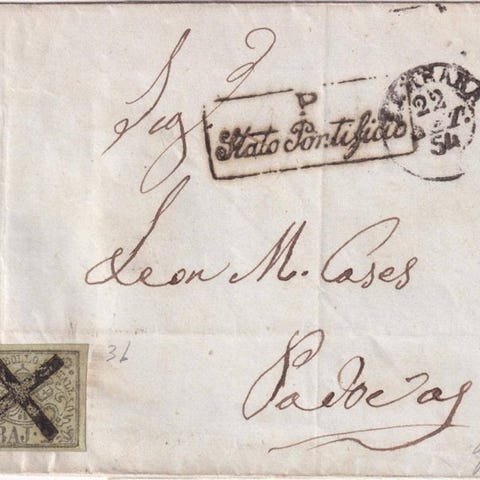 Sig
P
Stato Pontificio
FERRARA
22
54
Leon M. Cases
Padova
36
BAJ.